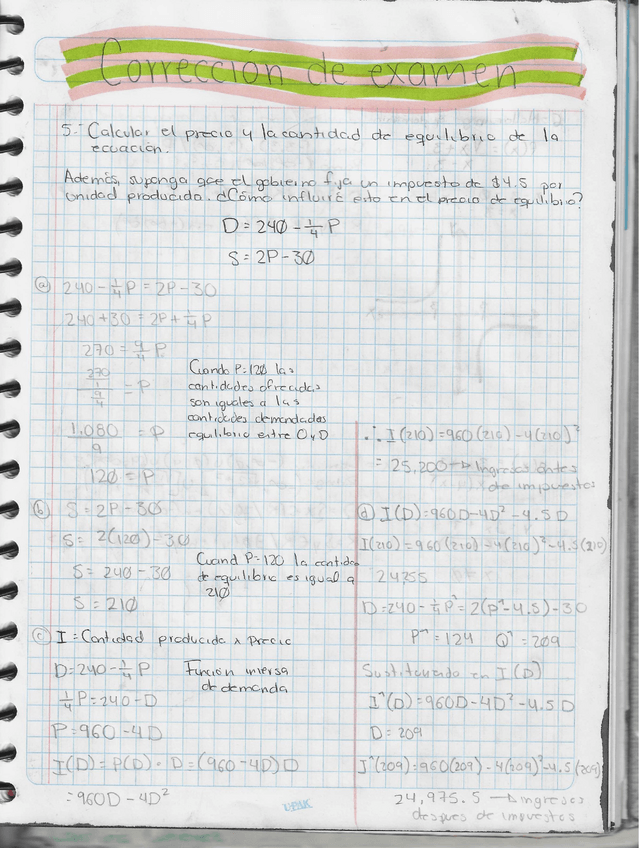 Corrección de examen
5.- Calcular el precio y la cantidad de equilibrio de la
ecuación.
Además, suponga que el gobierno fija un impuesto de $4.5 por
unidad producida. ¿Cómo influirá esto en el precio de equilibrio?
D = 240 - 1/4 P
S = 2P - 30
ⓐ 240 - 1/4 P = 2P - 30
240 + 30 = 2P + 1/4 P
270 = 9/4 P
270 / (9/4) = P
1.080 / 9 = P
120 = P
Cuando P = 120 las
cantidades ofrecidas
son iguales a las
cantidades demandadas
equilibrio entre O y D
ⓑ S = 2P - 30
S = 2(120) - 30
S = 240 - 30
S = 210
Cuand P = 120 la cantidad
de equilibrio es igual a
210
ⓒ I = Cantidad producida x Precio
D = 240 - 1/4 P
1/4 P = 240 - D
P = 960 - 4D
Función inversa
de demanda
I(D) = P(D) · D = (960 - 4D) D
= 960D - 4D²
∴ I(210) = 960(210) - 4(210)²
= 25,200 → Ingresos antes
de impuestos
ⓓ I(D) = 960D - 4D² - 4.5D
I(210) = 960(210) - 4(210)² - 4.5(210)
24255
D = 240 - 1/4 P^ = 2(P^ - 4.5) - 30
P^ = 124 Q^ = 209
Sustituyendo en I(D)
I^(D) = 960D - 4D² - 4.5D
D = 209
I^(209) = 960(209) - 4(209)² - 4.5(209)
24,975.5 → Ingresos
despues de impuestos